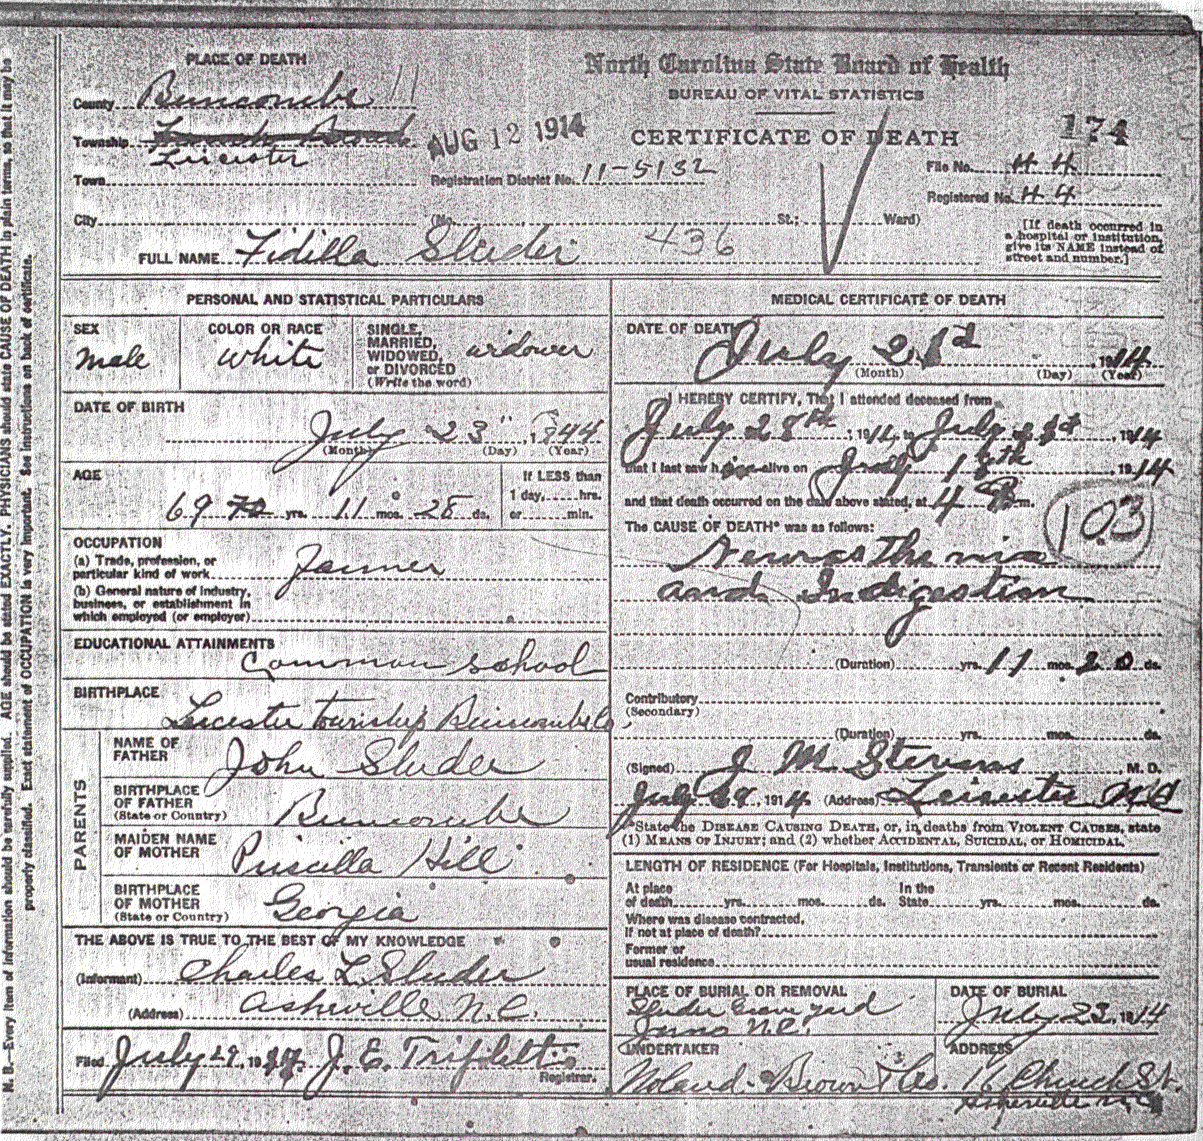 N. B.—Every item of information should be carefully supplied. AGE should be stated EXACTLY. PHYSICIANS should state CAUSE OF DEATH in plain terms, so that it may be
properly classified. Exact statement of OCCUPATION is very important. See instructions on back of certificate.
PLACE OF DEATH
County Buncombe 11
Township French Broad
Leicester
Town
City
North Carolina State Board of Health
BUREAU OF VITAL STATISTICS
CERTIFICATE OF DEATH
AUG 12 1914
174
Registration District No. 11-5132
File No. 44
Registered No. 44
(No. St.; Ward)
[If death occurred in
a hospital or institution,
give its NAME instead of
street and number.]
FULL NAME Fidilla Sluder 436
PERSONAL AND STATISTICAL PARTICULARS
SEX
male
COLOR OR RACE
white
SINGLE,
MARRIED,
WIDOWED,
or DIVORCED
(Write the word)
widower
DATE OF BIRTH
July 23 1844
(Month) (Day) (Year)
AGE
69 70 yrs. 11 mos. 28 ds.
If LESS than
1 day, hrs.
or min.
OCCUPATION
(a) Trade, profession, or
particular kind of work Farmer
(b) General nature of Industry,
business, or establishment in
which employed (or employer)
EDUCATIONAL ATTAINMENTS
Common school
BIRTHPLACE
Leicester township Buncombe Co
PARENTS
NAME OF
FATHER John Sluder
BIRTHPLACE
OF FATHER
(State or Country) Buncombe
MAIDEN NAME
OF MOTHER Priscilla Hill
BIRTHPLACE
OF MOTHER
(State or Country) Georgia
THE ABOVE IS TRUE TO THE BEST OF MY KNOWLEDGE
(Informant) Charles L. Sluder
(Address) Asheville N.C.
Filed July 29, 1914 J. E. Triplett
Registrar.
MEDICAL CERTIFICATE OF DEATH
DATE OF DEATH
July 21st 1914
(Month) (Day) (Year)
I HEREBY CERTIFY, That I attended deceased from
July 28th, 191 to July 21st, 1914
that I last saw him alive on July 18th 1914
and that death occurred on the date above stated, at 4 P m.
The CAUSE OF DEATH* was as follows:
103
Neurasthenia
and Indigestion
(Duration) yrs. 11 mos. 20 ds.
Contributory
(Secondary)
(Duration) yrs. mos. ds.
(Signed) J M Stevens M. D.
July 1914 (Address) Leicester N.C.
*State the DISEASE CAUSING DEATH, or, in deaths from VIOLENT CAUSES, state
(1) MEANS OF INJURY; and (2) whether ACCIDENTAL, SUICIDAL, OR HOMICIDAL.
LENGTH OF RESIDENCE (For Hospitals, Institutions, Transients or Recent Residents)
At place
of death yrs. mos. ds.
In the
State yrs. mos. ds.
Where was disease contracted,
If not at place of death?
Former or
usual residence
PLACE OF BURIAL OR REMOVAL
Sluder Graveyard
N.C.
DATE OF BURIAL
July 23, 1914
UNDERTAKER
Noland Brown & Co.
ADDRESS
16 Church St.
Asheville N.C.